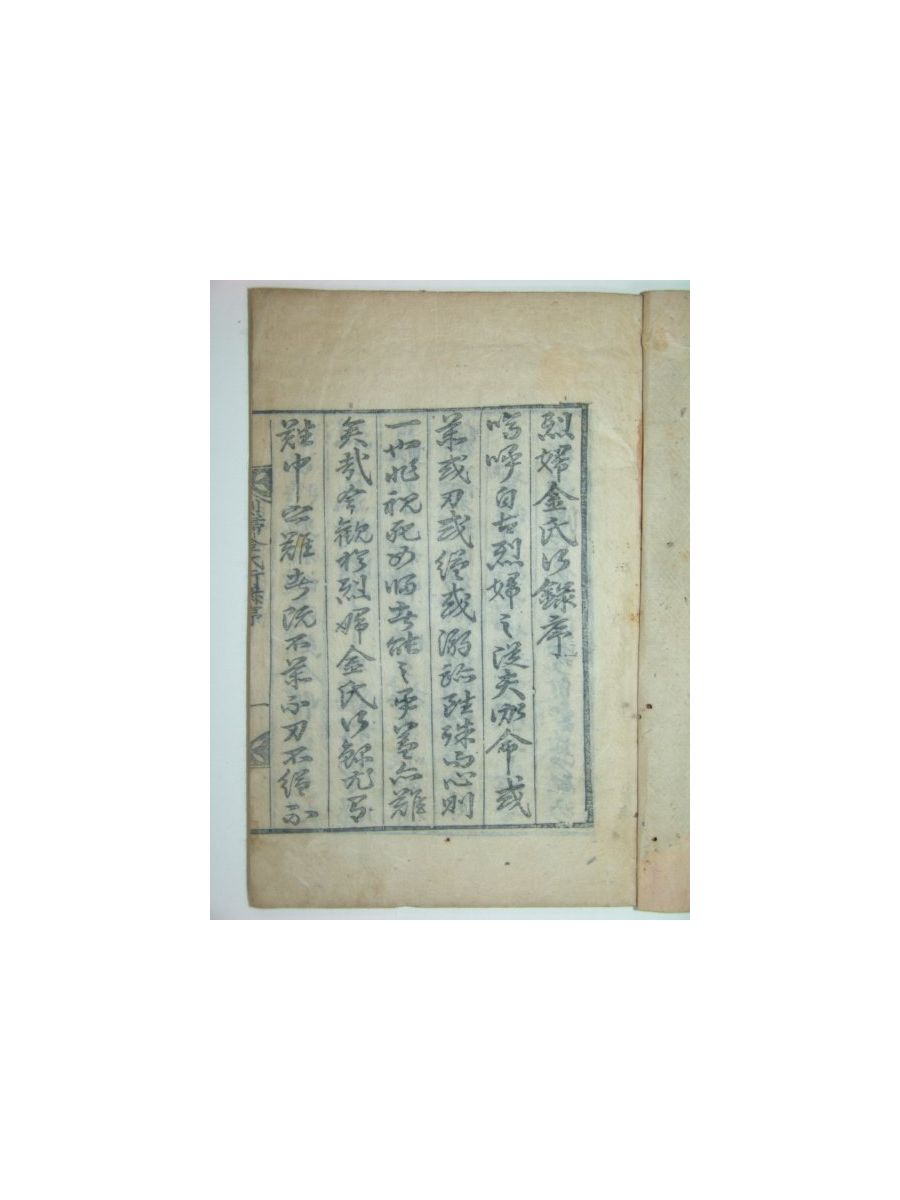 烈婦金氏行錄序
嗚呼自古烈婦之從夫殞命或
藥或刃或縊或溺跡雖殊而心則
一也非視死如歸者能之乎蓋亦難
矣哉今觀於烈婦金氏行錄尤爲
難中之難者既不藥不刃不縊不
烈婦金氏行錄序 一